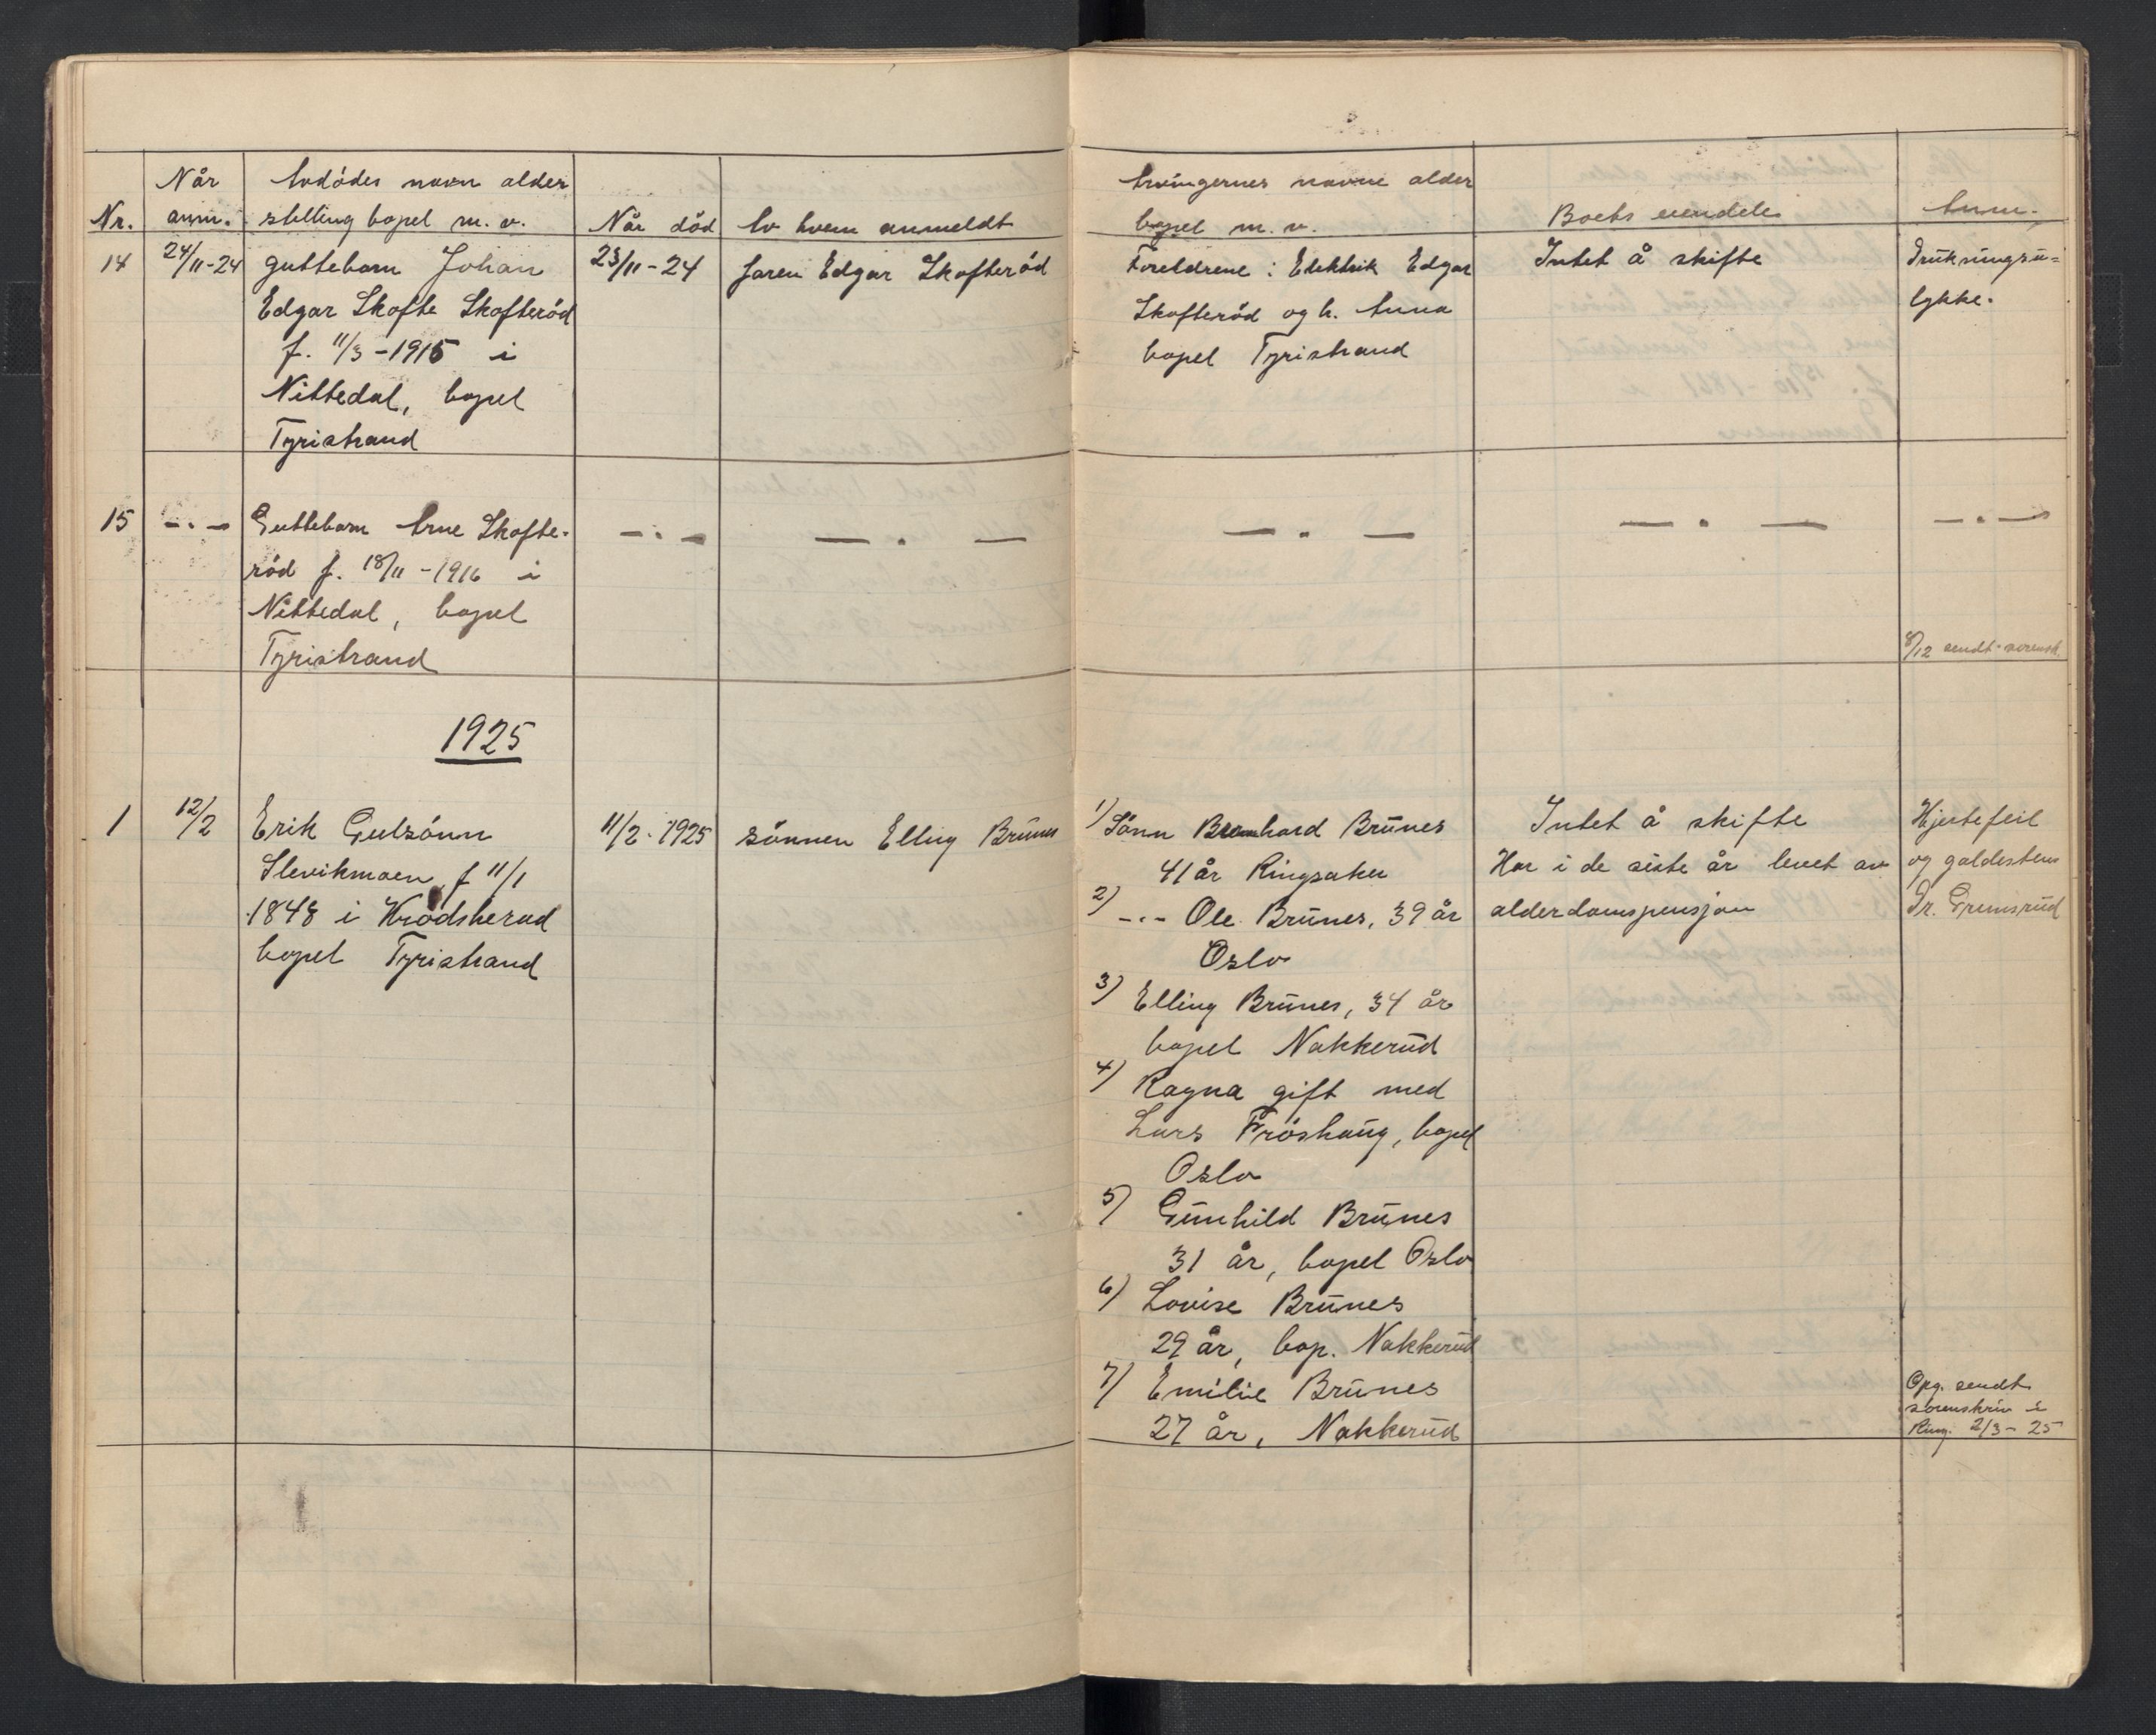 Når
anm.
Avdödes navn alder
stilling bopel m. v.
Nr.
Når död
Av hvem anmeldt
Arvingernes navne alder
bopel m. v.
Boets eiendele
Anm.
14
24/11-24
guttebarn Johan
Edgar Skofte Skofteröd
f. 11/3-1915 i
Nittedal, bopel
Tyristrand
23/11-24
faren Edgar Skofteröd
Foreldrene : Elektrik Edgar
Skofteröd og h. Anna
bopel Tyristrand
Intet å skifte
Drukningsu=
lykke.
15
-.-
Guttebarn Arne Skofte-
röd f. 18/11-1916 i
Nittedal, bopel
Tyristrand
-.-
— . —
— . —
— . —
-.-
8/12 sendt sorensk.
1925
1
12/2
Erik Gulsönn
Slevikmoen, f 11/1
1848 i Krödsherad
bopel Tyristrand
11/2-1925
sönnen Elling Brunes
1) Sönn Bernhard Brunes
41 år Ringsaker
2) -.- Ole Brunes, 39 år
Oslo
3) Elling Brunes, 34 år
bopel Nakkerud
4) Ragna gift med
Lars Fröshaug, bopel
Oslo
5) Gunhild Brunes
31 år, bopel Oslo
6) Lovise Brunes
29 år, bop. Nakkerud
7) Emilie Brunes
27 år, Nakkerud
Intet å skifte
Har i de siste år levet av
alderdomspensjon
Hjertefeil
og galdesten
Dr. Gremsrud
Opg. sendt
sorenskriv i
Ring. 2/3-25